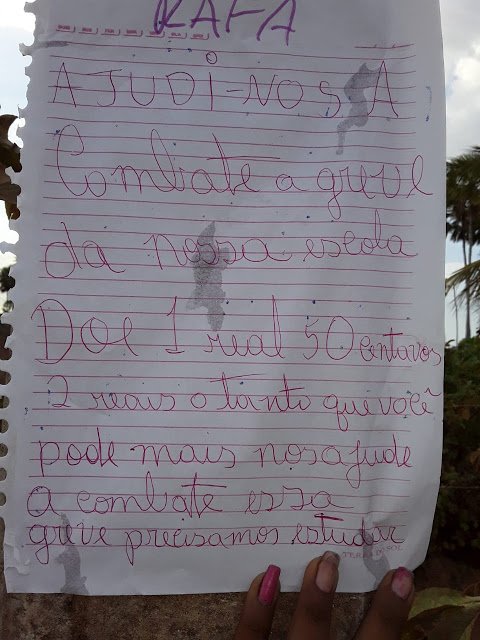 RAFA
AJUDI-NOS A
Combate a greve
da nossa escola
Doe 1 real 50 centavos
2 reais o tanto que você
pode mais nos ajude
a combate essa
greve precisamos estudar